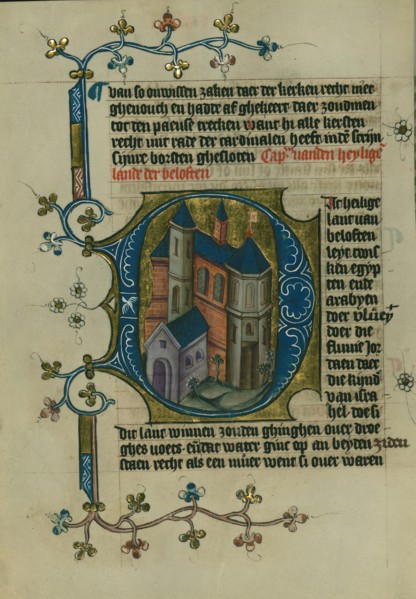 van so onwissen zaken daer der kerken recht niet
ghenouch en hadde af ghekeert daer zoudmen
tot den paeuse trecken want hi alle kersten
recht mit rade der cardinalen heeft inde scrijn
sijnre borsten ghesloten Capᵐ vanden heylige
lande der beloften
D heilige
lant van
beloften
leyt tus
ken egyp
ten ende
arabyen
doer
doer die
flume Jor
daen daer
die kijnd
van isra
hel doe si
dit lant winnen zouden ghinghen over droe
ghes voets water ginc op an beyden ziden
staen recht als een muer went si over waren